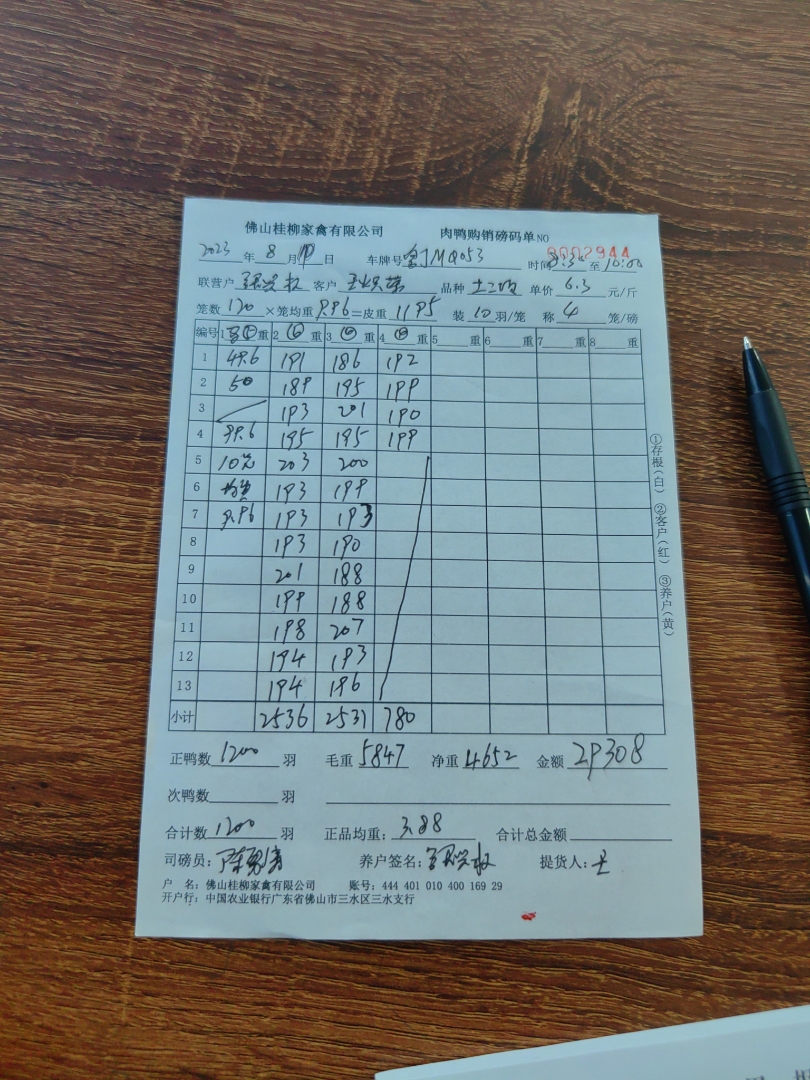 佛山桂柳家禽有限公司 肉鸭购销磅码单NO 0002944
2023年8月 日 车牌号 MQ053 时间8:30至10:00
联营户 客户 品种 土二 单价6.3元/斤
笼数120×笼均重9.96=皮重1195 装10羽/笼 称4笼/磅
编号 1 重 2 重 3 重 4 重 5 重 6 重 7 重 8 重
1 49.6 191 186 192
2 50 189 195 199
3 193 201 190
4 99.6 195 195 199
5 10 203 200
6 193 199
7 9.96 193 193
8 193 190
9 201 188
10 199 188
11 198 207
12 194 193
13 194 196
小计 2536 2531 780
正鸭数1200羽 毛重5847 净重4652 金额29308
次鸭数 羽
合计数1200羽 正品均重:3.88 合计总金额
司磅员: 养户签名: 提货人:
户 名:佛山桂柳家禽有限公司 账号:444 401 010 400 169 29
开户行:中国农业银行广东省佛山市三水区三水支行
①存根(白) ②客户(红) ③养户(黄)